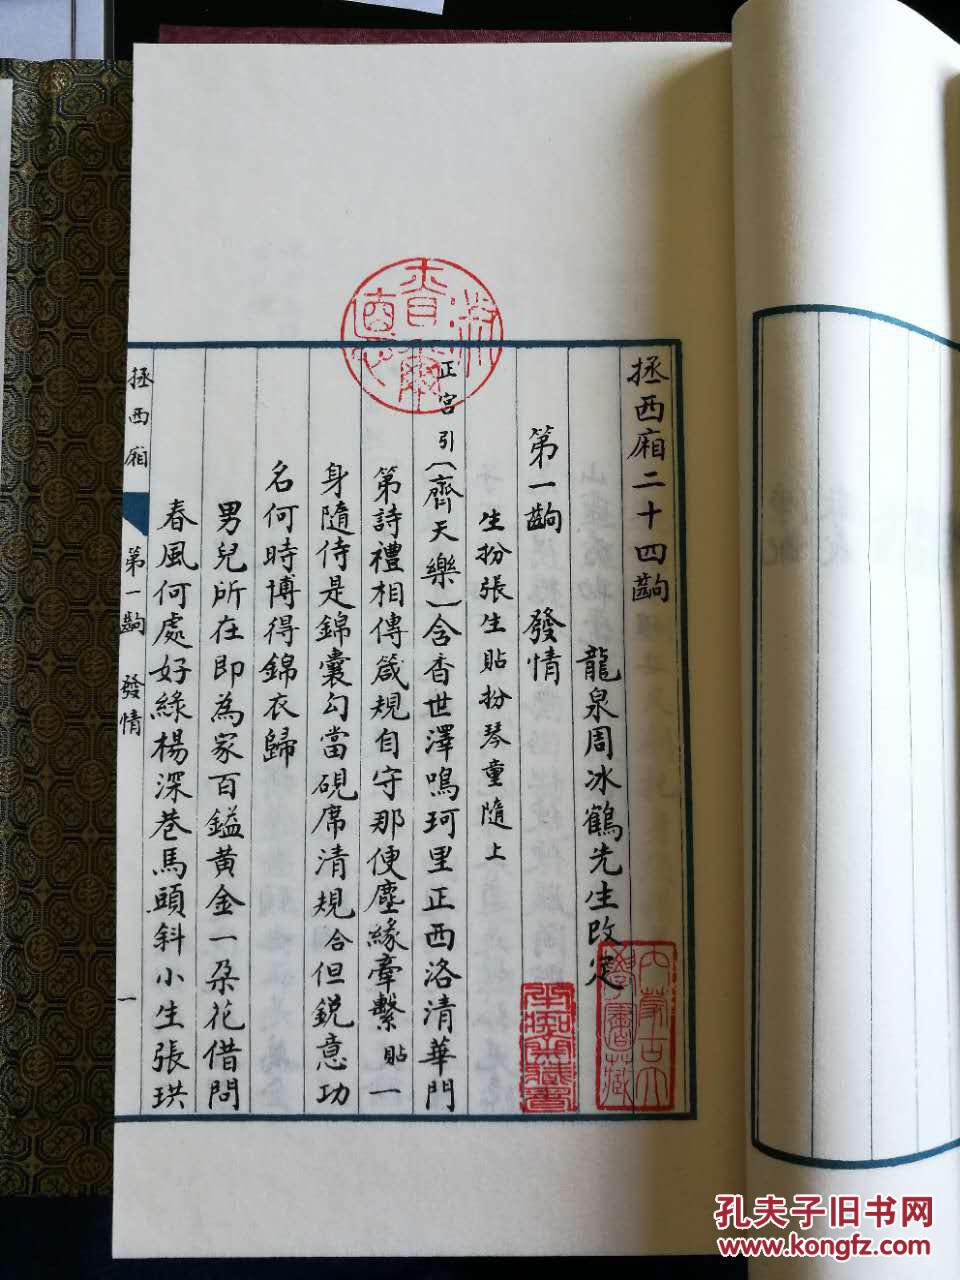 拯西廂二十四齣
龍泉周冰鶴先生改定
第一齣 發情
生扮張生貼扮琴童隨上
正宮引〔齊天樂〕含香世澤鳴珂里正西洛清華門
第詩禮相傳箴規自守那便塵緣牽繫貼一
身隨侍是錦囊勾當硯席清規合但銳意功
名何時博得錦衣歸
男兒所在即為家百鎰黃金一朶花借問
春風何處好綠楊深巷馬頭斜小生張珙
拯西廂
第一齣 發情
一
內蒙古大學圖書館藏
孔夫子旧书网
www.kongfz.com